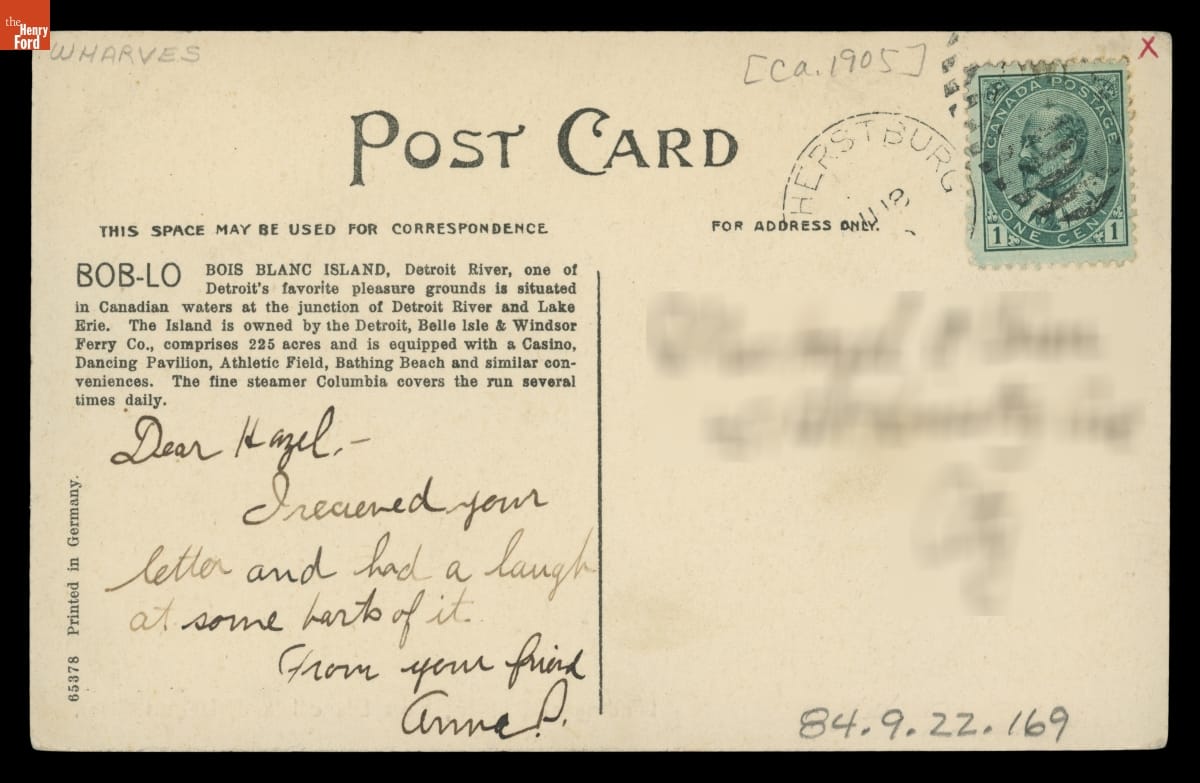 the
Henry
Ford
WHARVES
[Ca. 1905]
X
POST CARD
CANADA POSTAGE
ONE CENT
1 1
HERSTBURG
THIS SPACE MAY BE USED FOR CORRESPONDENCE
FOR ADDRESS ONLY.
BOB-LO BOIS BLANC ISLAND, Detroit River, one of
Detroit's favorite pleasure grounds is situated
in Canadian waters at the junction of Detroit River and Lake
Erie. The Island is owned by the Detroit, Belle Isle & Windsor
Ferry Co., comprises 225 acres and is equipped with a Casino,
Dancing Pavilion, Athletic Field, Bathing Beach and similar con-
veniences. The fine steamer Columbia covers the run several
times daily.
Dear Hazel,-
I recieved your
letter and had a laugh
at some parts of it.
From your friend
Anna P.
65378 Printed in Germany.
84.9.22.169